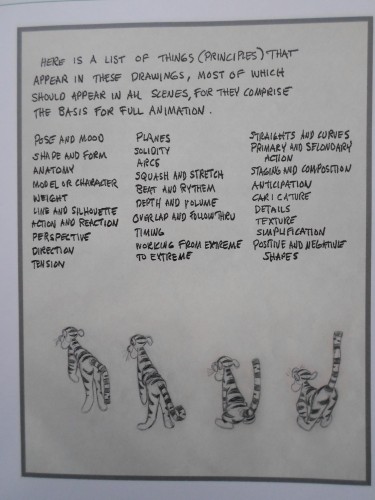 HERE IS A LIST OF THINGS (PRINCIPLES) THAT
APPEAR IN THESE DRAWINGS, MOST OF WHICH
SHOULD APPEAR IN ALL SCENES, FOR THEY COMPRISE
THE BASIS FOR FULL ANIMATION.
POSE AND MOOD
SHAPE AND FORM
ANATOMY
MODEL OR CHARACTER
WEIGHT
LINE AND SILHOUETTE
ACTION AND REACTION
PERSPECTIVE
DIRECTION
TENSION
PLANES
SOLIDITY
ARCS
SQUASH AND STRETCH
BEAT AND RYTHEM
DEPTH AND VOLUME
OVERLAP AND FOLLOWTHRU
TIMING
WORKING FROM EXTREME
TO EXTREME
STRAIGHTS AND CURVES
PRIMARY AND SECONDARY
ACTION
STAGING AND COMPOSITION
ANTICIPATION
CARICATURE
DETAILS
TEXTURE
SIMPLIFICATION
POSITIVE AND NEGATIVE
SHAPES